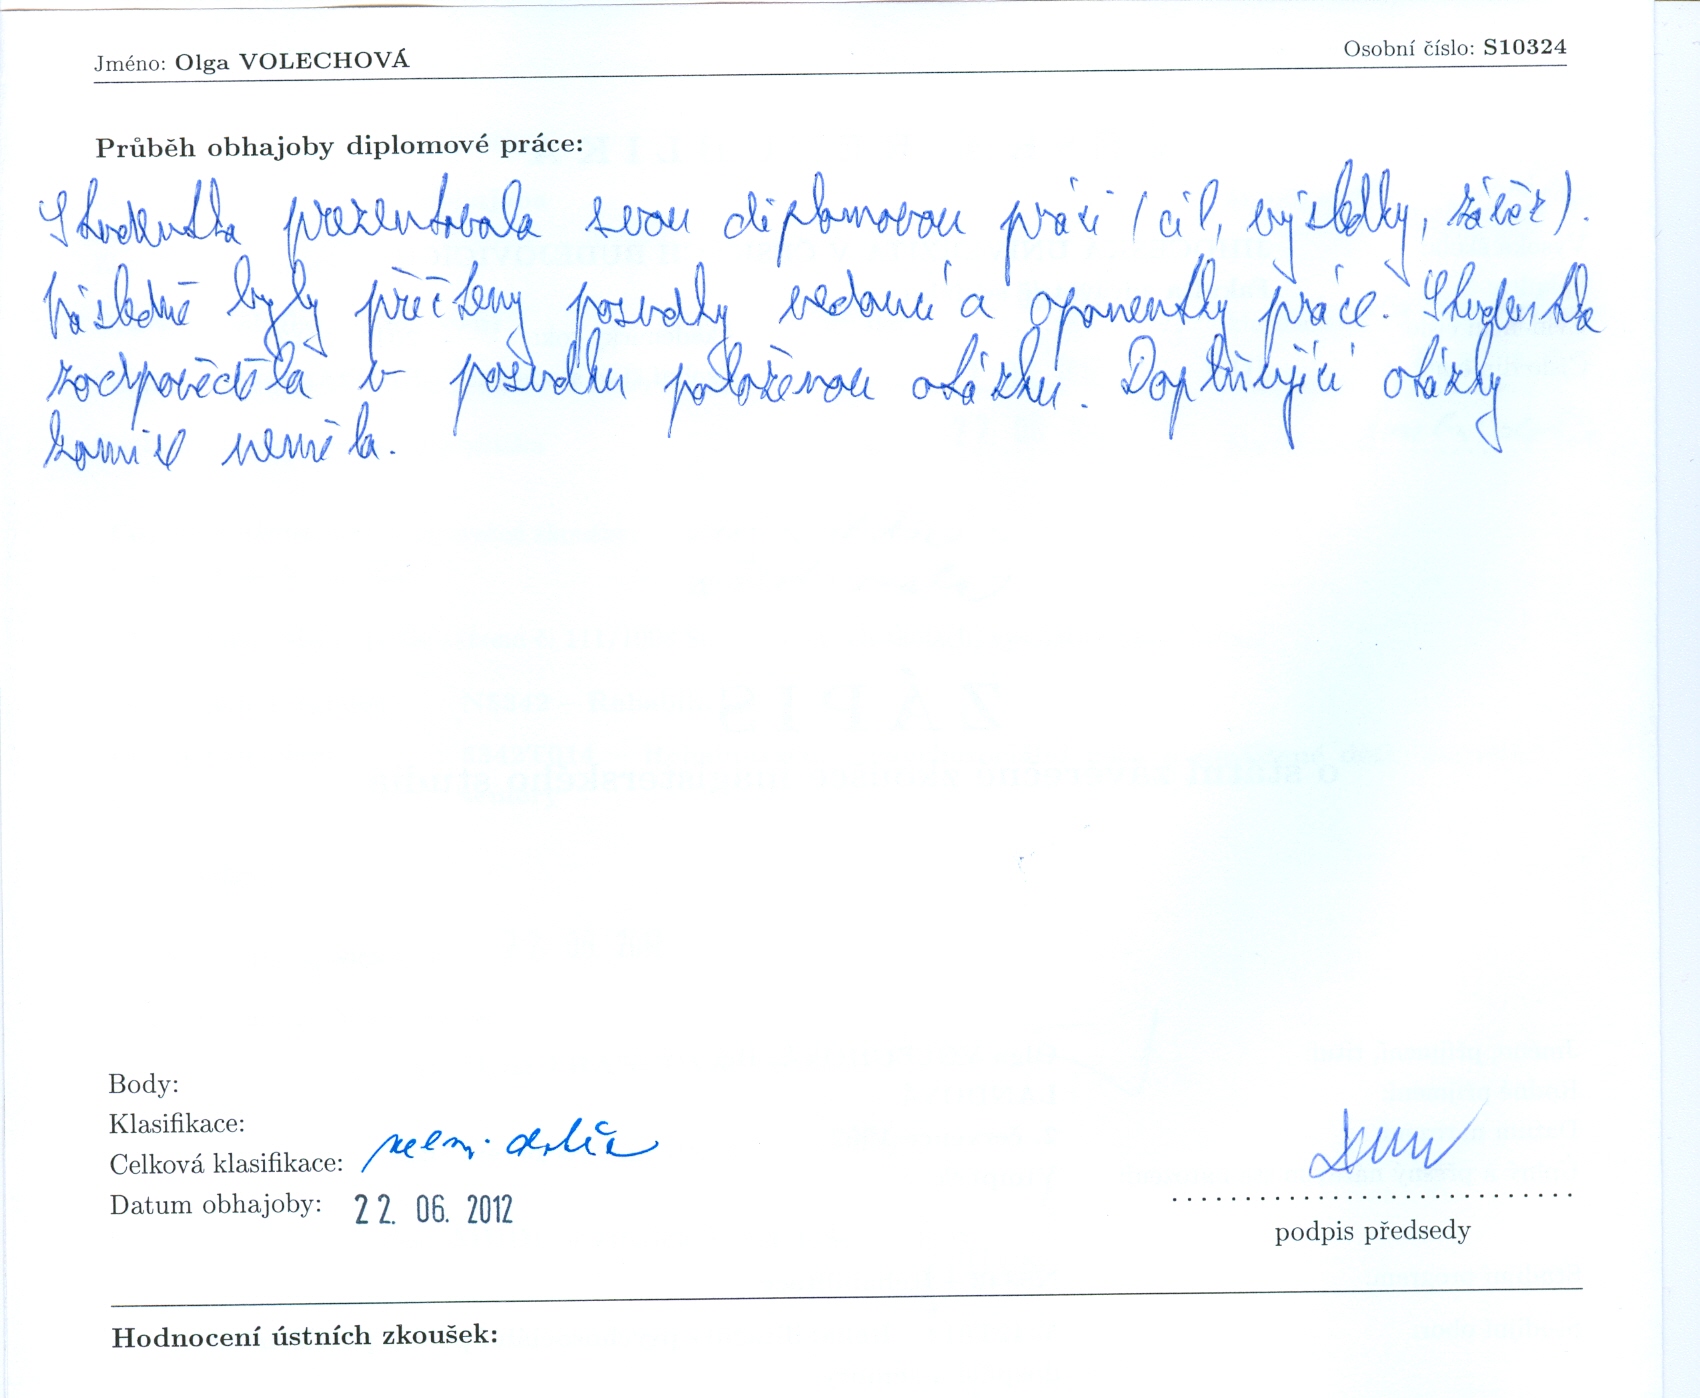 Jméno: Olga VOLECHOVÁ Osobní číslo: S10324
Průběh obhajoby diplomové práce:
Studentka prezentovala svou diplomovou práci (cíl, výsledky, závěr).
Následně byly přečteny posudky vedoucí a oponentky práce. Studentka
zodpověděla v posudku položenou otázku. Doplňující otázky
komise neměla.
Body:
Klasifikace:
Celková klasifikace: velmi dobře
Datum obhajoby: 22. 06. 2012
podpis předsedy
Hodnocení ústních zkoušek: